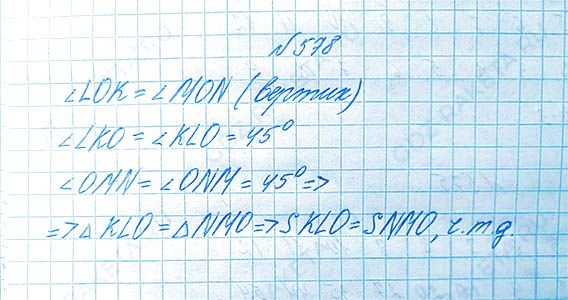 №578
∠LOK = ∠MON (вертик)
∠LKO = ∠KLO = 45°
∠OMN = ∠ONM = 45° =>
=> △KLO = △NMO => SKLO = SNMO, ч.т.д.